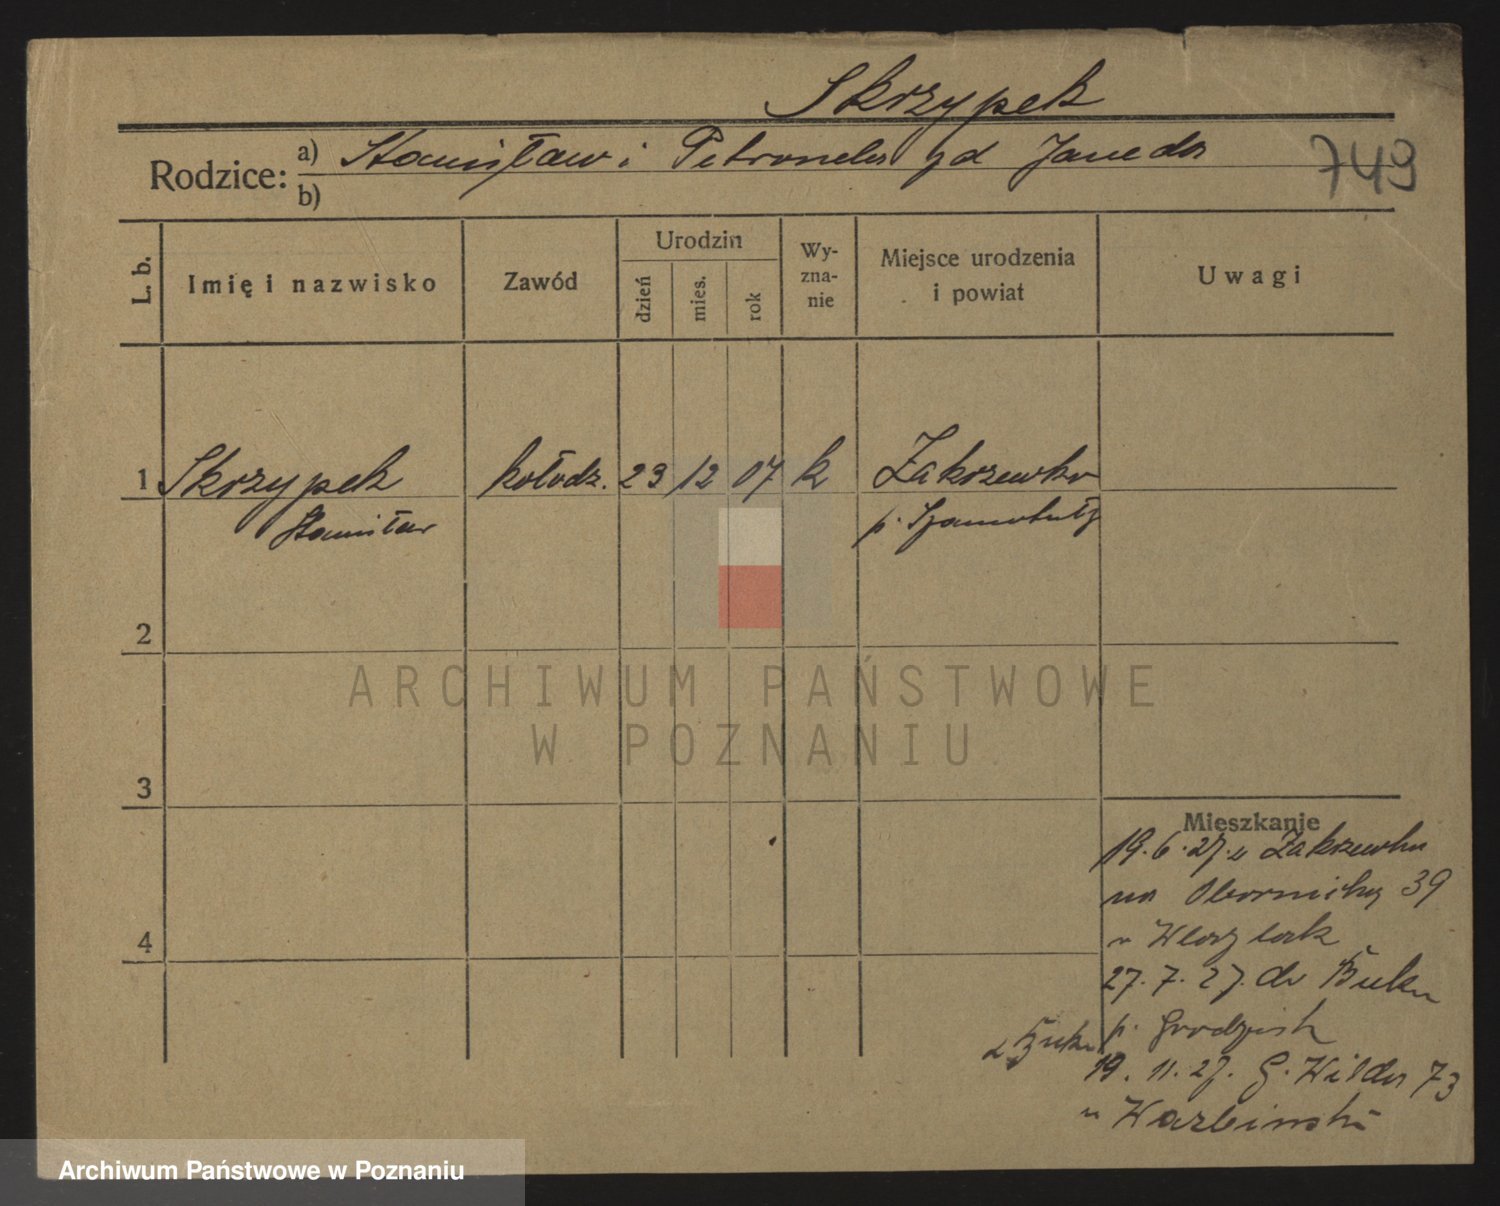 Skrzypek
Rodzice: a) Stanisław i Petronela zd Janeda
b)
749
L. b.
Imię i nazwisko
Zawód
Urodzin
dzień
mies.
rok
Wy-
zna-
nie
Miejsce urodzenia
i powiat
Uwagi
1 Skrzypek kołodz. 23 12 07 k Zakrzewko
Stanisław p. Szamotuły
2
ARCHIWUM PAŃSTWOWE
W POZNANIU
3
Mieszkanie
19.6.27. z Zakrzewka
na Obornicką 39
4
27.7.27. do Buku
p. Grodzisk
z Buku
19.11.27. G. Wilda 73
Archiwum Państwowe w Poznaniu